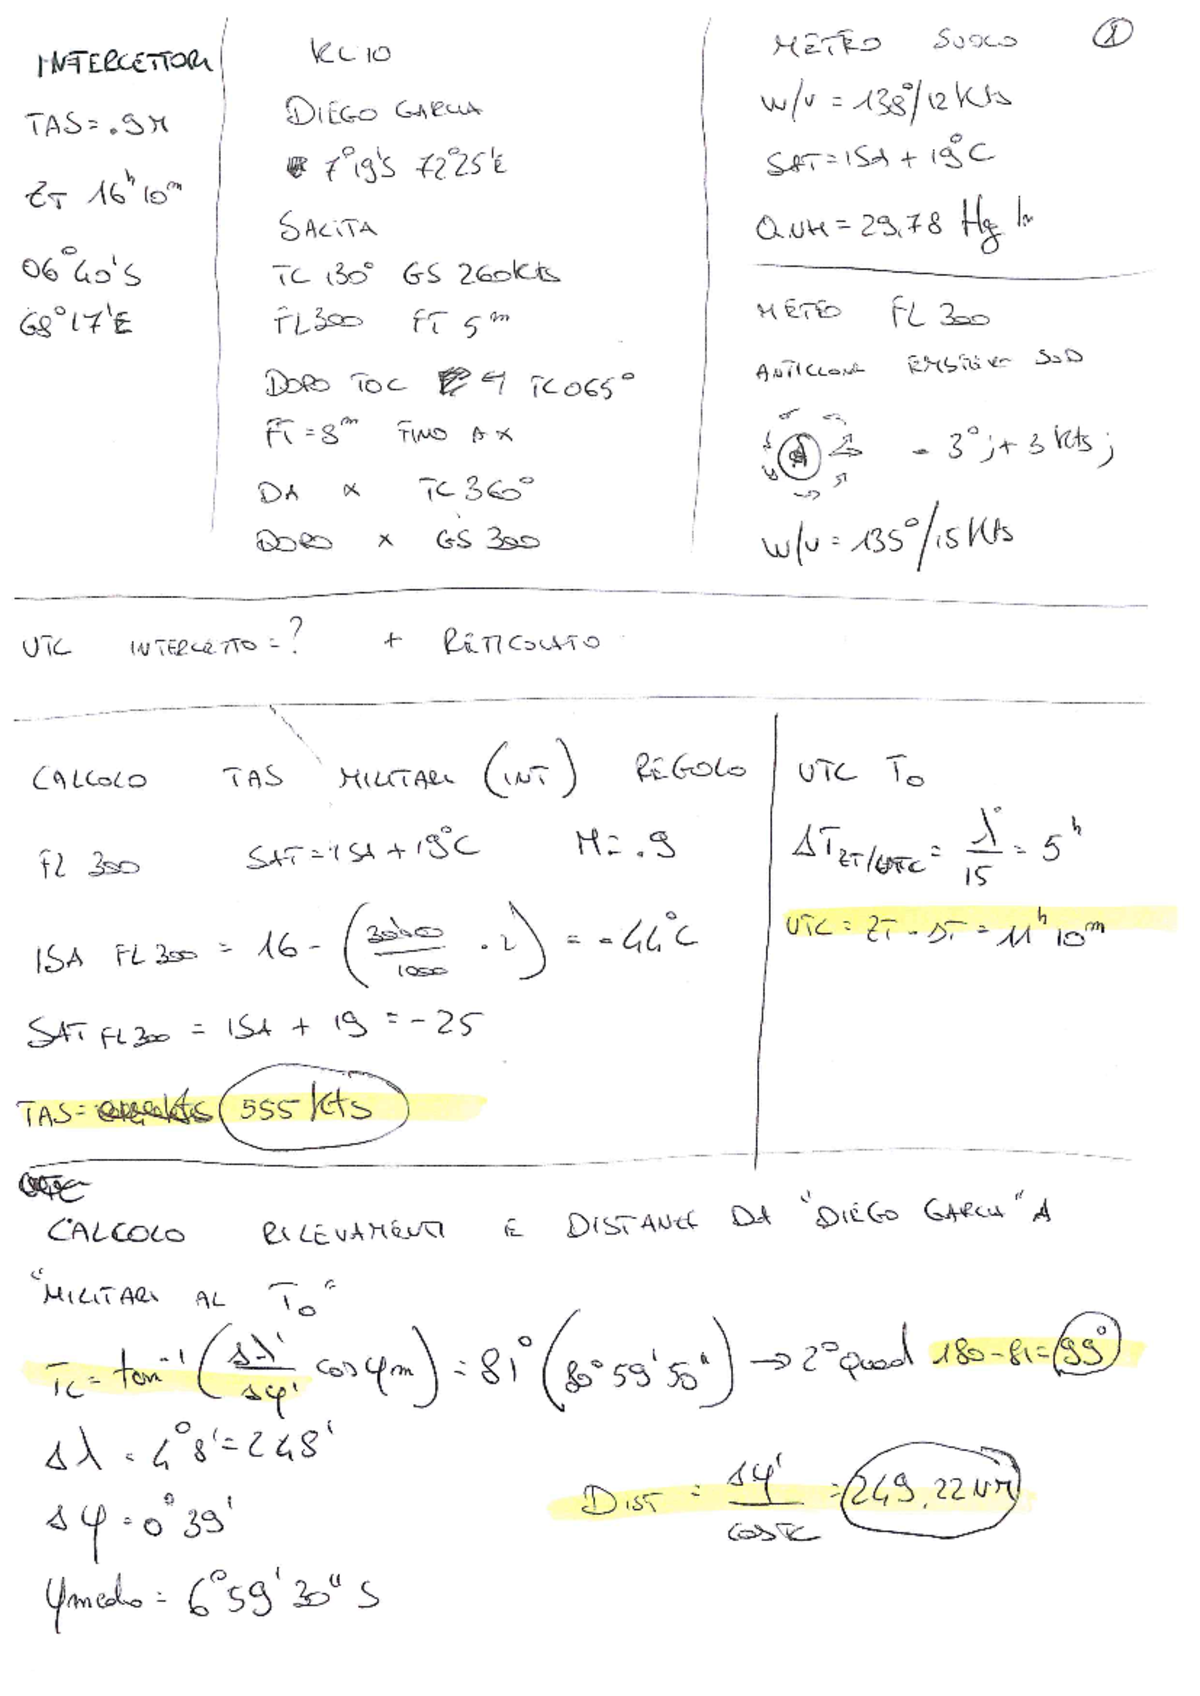 ①
INTERCETTORI
TAS = .9M
ZT 16ʰ10ᵐ
06°40'S
68°17'E
KC10
DIEGO GARCIA
7°19'S 72°25'E
SALITA
TC 130° GS 260kts
FL300 FT 5ᵐ
DOPO TOC TC 065°
FT = 8ᵐ FINO A X
DA X TC 360°
DOPO X GS 300
METEO SUOLO
W/V = 138°/12 Kts
SAT = ISA + 19°C
QNH = 29,78 Hg In
METEO FL 300
ANTICLONE EMISFERO SUD
- 3°; + 3 Kts;
W/V = 135°/15 Kts
UTC INTERCETTO = ? + RETICOLATO
CALCOLO TAS MILITARI (INT) REGOLO
FL 300 SAT = ISA + 19°C M = .9
ISA FL 300 = 16 - (30000/1000 · 2) = -44°C
SAT FL300 = ISA + 19 = -25
TAS = 555 Kts
UTC T₀
ΔT ZT/UTC = λ°/15 = 5ʰ
UTC = ZT - ΔT = 11ʰ10ᵐ
CALCOLO RILEVAMENTI E DISTANZE DA "DIEGO GARCIA" A
"MILITARI AL T₀"
Tc = tan⁻¹ (Δλ'/Δφ' cos φm) = 81° (80°59'50") → 2° quad 180-81 = 99°
Δλ = 4°8' = 248'
Δφ = 0°39'
φmedio = 6°59'30" S
DIST = Δφ'/cos TC = 249,22 NM